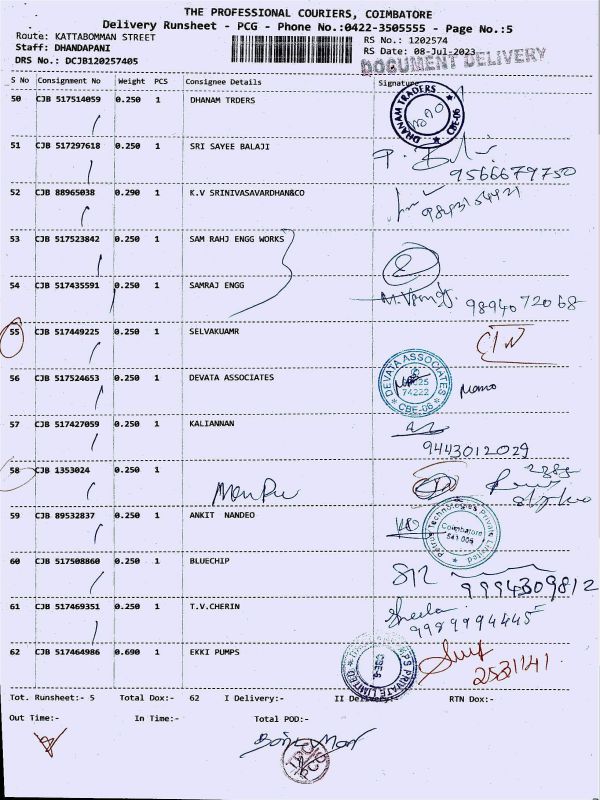 THE PROFESSIONAL COURIERS, COIMBATORE
Delivery Runsheet - PCG - Phone No.:0422-3505555 - Page No.:5
Route: KATTABOMMAN STREET
RS No.: 1202574
Staff: DHANDAPANI
RS Date: 08-Jul-2023
DRS No.: DCJB120257405
DOCUMENT DELIVERY
S No Consignment No Weight PCS Consignee Details Signature
50 CJB 517514059 0.250 1 DHANAM TRDERS
DHANAM TRADERS CBE-06
51 CJB 517297618 0.250 1 SRI SAYEE BALAJI
9566679750
52 CJB 88965038 0.290 1 K.V SRINIVASAVARDHAN&CO
53 CJB 517523842 0.250 1 SAM RAHJ ENGG WORKS
54 CJB 517435591 0.250 1 SAMRAJ ENGG
9894072068
55 CJB 517449225 0.250 1 SELVAKUAMR
56 CJB 517524653 0.250 1 DEVATA ASSOCIATES
DEVATA ASSOCIATES 74222 CBE-06
57 CJB 517427059 0.250 1 KALIANNAN
9443012029
58 CJB 1353024 0.250 1
59 CJB 89532837 0.250 1 ANKIT NANDEO
Technologies Private Limited Coimbatore
60 CJB 517508860 0.250 1 BLUECHIP
9994309812
61 CJB 517469351 0.250 1 T.V.CHERIN
Sheela
9989994445
62 CJB 517464986 0.690 1 EKKI PUMPS
PRIVATE LIMITED
2531141
Tot. Runsheet:- 5 Total Dox:- 62 I Delivery:- II Delivery:- RTN Dox:-
Out Time:- In Time:- Total POD:-